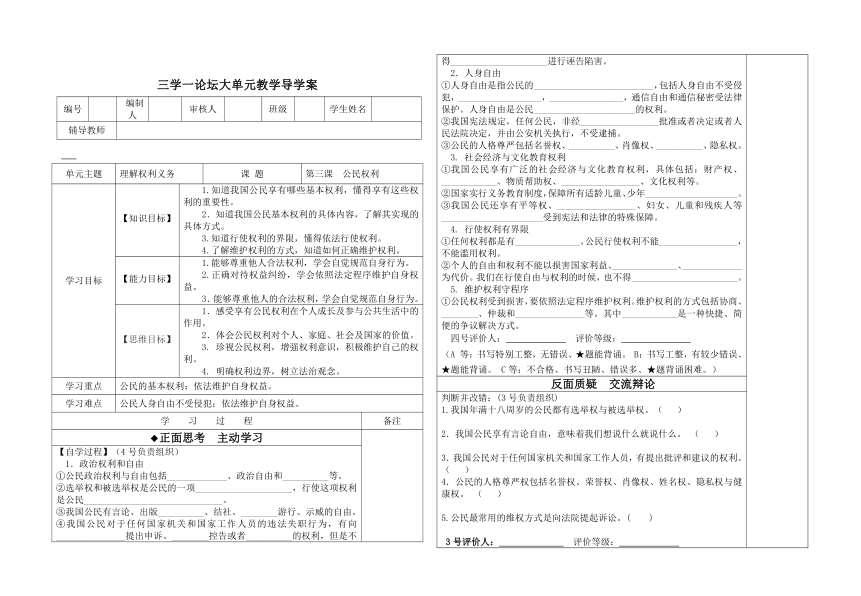 三学一论坛大单元教学导学案
编号 编制人 审核人 班级 学生姓名
辅导教师
单元主题 理解权利义务 课 题 第三课 公民权利
学习目标
【知识目标】
1.知道我国公民享有哪些基本权利，懂得享有这些权
利的重要性。
2. 知道我国公民基本权利的具体内容，了解其实现的
具体方式。
3.知道行使权利的界限，懂得依法行使权利。
4.了解维护权利的方式，知道如何正确维护权利。
【能力目标】
1.能够尊重他人合法权利，学会自觉规范自身行为。
2.正确对待权益纠纷，学会依照法定程序维护自身权
益。
3.能够尊重他人的合法权利，学会自觉规范自身行为。
【思维目标】
1. 感受享有公民权利在个人成长及参与公共生活中的
作用。
2. 体会公民权利对个人、家庭、社会及国家的价值。
3. 珍视公民权利，增强权利意识，积极维护自己的权
利。
4. 明确权利边界，树立法治观念。
学习重点 公民的基本权利；依法维护自身权益。
学习难点 公民人身自由不受侵犯；依法维护自身权益。
学 习 过 程 备注
◆正面思考 主动学习
【自学过程】（4号负责组织）
1. 政治权利和自由
①公民政治权利与自由包括____________、政治自由和__________等。
②选举权和被选举权是公民的一项____________________，行使这项权利
是公民______________________________。
③我国公民有言论、出版__________、结社、________游行、示威的自由。
④我国公民对于任何国家机关和国家工作人员的违法失职行为，有向
______________提出申诉、________控告或者__________的权利，但是不
得____________________进行诬告陷害。
2. 人身自由
①人身自由是指公民的________________________，包括人身自由不受侵
犯，________________，________________，通信自由和通信秘密受法律
保护。人身自由是公民____________________的权利。
②我国宪法规定，任何公民，非经________________批准或者决定或者人
民法院决定，并由公安机关执行，不受逮捕。
③公民的人格尊严权包括名誉权、__________、肖像权、__________、隐私权。
3. 社会经济与文化教育权利
①我国公民享有广泛的社会经济与文化教育权利，具体包括：财产权、
____________、物质帮助权、________________、文化权利等。
②国家实行义务教育制度，保障所有适龄儿童、少年____________________。
③我国公民还享有平等权、________________、妇女、儿童和残疾人等
____________________受到宪法和法律的特殊保障。
4. 行使权利有界限
①任何权利都是有______________。公民行使权利不能________________，
不能滥用权利。
②个人的自由和权利不能以损害国家利益、______________、____________
为代价。我们在行使自由与权利的时候，也不得______________________。
5. 维护权利守程序
①公民权利受到损害，要依照法定程序维护权利。维护权利的方式包括协商、
________、仲裁和______________等。其中____________是一种快捷、简
便的争议解决方式。
四号评价人：____________ 评价等级：______________
（A 等：书写特别工整，无错误、★题能背诵。 B：书写工整，有较少错误、
★题能背诵。 C等：不合格、书写丑陋、错误多、★题背诵困难。）
反面质疑 交流辩论
判断并改错：(3号负责组织)
1.我国年满十八周岁的公民都有选举权与被选举权。（ ）
2. 我国公民享有言论自由，意味着我们想说什么就说什么。 （ ）
3.我国公民对于任何国家机关和国家工作人员，有提出批评和建议的权利。
（ ）
4. 公民的人格尊严权包括名誉权、荣誉权、肖像权、姓名权、隐私权与健
康权。 （ ）
5.公民最常用的维权方式是向法院提起诉讼。（ ）
3号评价人：____________ 评价等级：____________